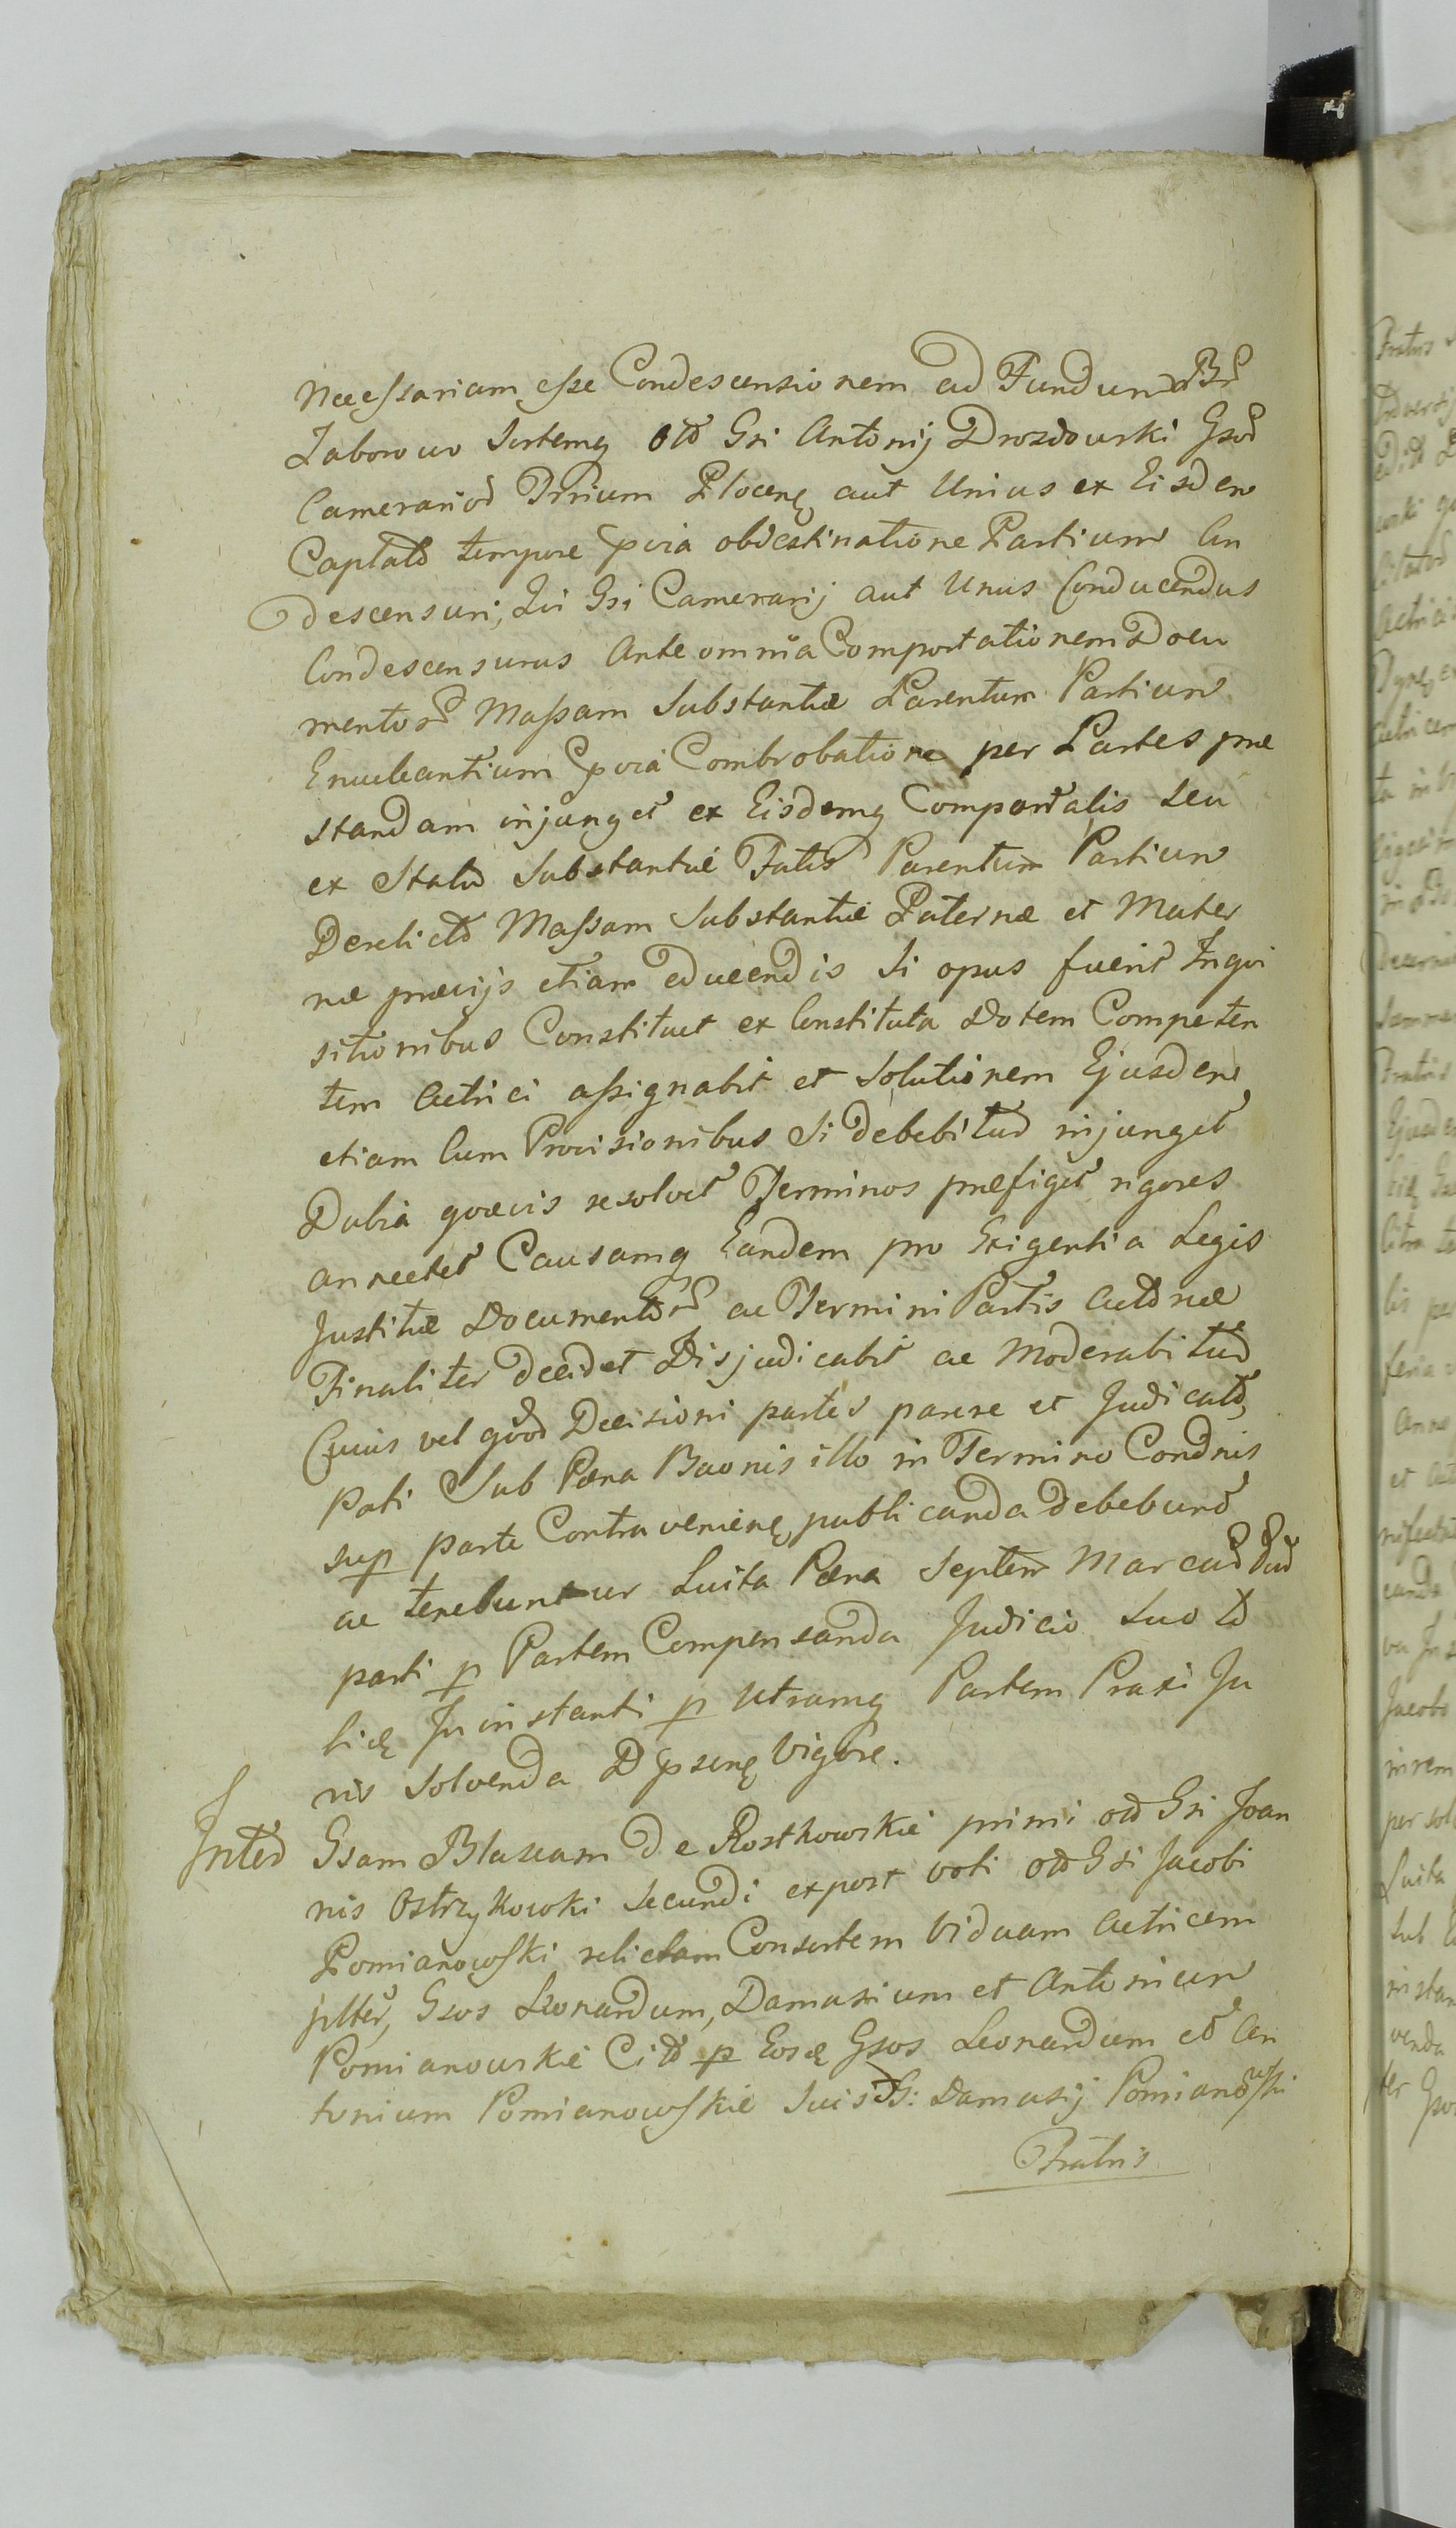 Necessariam esse Condescensionem ad Fundum Br
Zaborowo Sortemq olo Gsi Antonij Drozdowski Gsor
Camerarior Trrium Plocen aut Unius ex Eisdem
Captato tempore pvia obdestinatione Partium Con
descensuri, Qui Gsi Camerarij aut Unus Conducendus
Condescensurus Ante omnia Comportationem Docu
mentor Massam Substantiæ Parentum Partium
Enucleantium pvia Combrobatione per Partes præ
standam injunget ex Eisdemq Comportatis seu
ex Statu Substantiæ Fatis Parentum Partium
Derelicto Massam Substantiæ Paternæ et Mater
næ prævijs etiam educendis Si opus fuerit Inqvi
sitionibus Constituet ex Constituta Dotem Competen
tem Actrici assignabit et Solutionem Ejusdem
etiam Cum Provisionibus Si debebitur injunget
Dubia qvævis resolvet Terminos præfiget rigores
annectet Causamq Eandem pro Exigentia Legis
Justitiæ Documentor ac Termini Partis Actoreæ
Finaliter decidet Disjudicabit ac Moderabitur
Cuius vel qvor Decisioni partes parere et Judicato
Pati Sub Pæna Baonis illo in Termino Condnis
sup parte Contraveniene publicanda debebunt
ac tenebuntur Luita Pæna Septem Marcar
parti p Partem Compensanda Judicio suo to
lide In instanti p Utramq Partem Praxi Ju
ris Solvenda D psene Vigore.
Inter Gsam Blaseam de Rostkowskie primi olo Gsi Joan
nis Ostrzykowski Secundi expost voti olo Gsi Jacobi
Pomianowski relictam Consortem Viduam Actricem
pltter, Gsos Leonardum, Damasium et Antonium
Pomianowskie Cito p Eosde Gsos Leonardum et An
tonium Pomianowskie Suis Gs: Damasij Pomianowski
Fratris